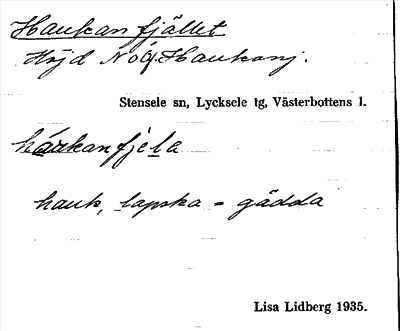 Haukanfjället
Höjd N Ö Haukansj.
Stensele sn, Lycksele tg, Västerbottens l.
háukanfjela
hauk, lapska = gädda
Lisa Lidberg 1935.